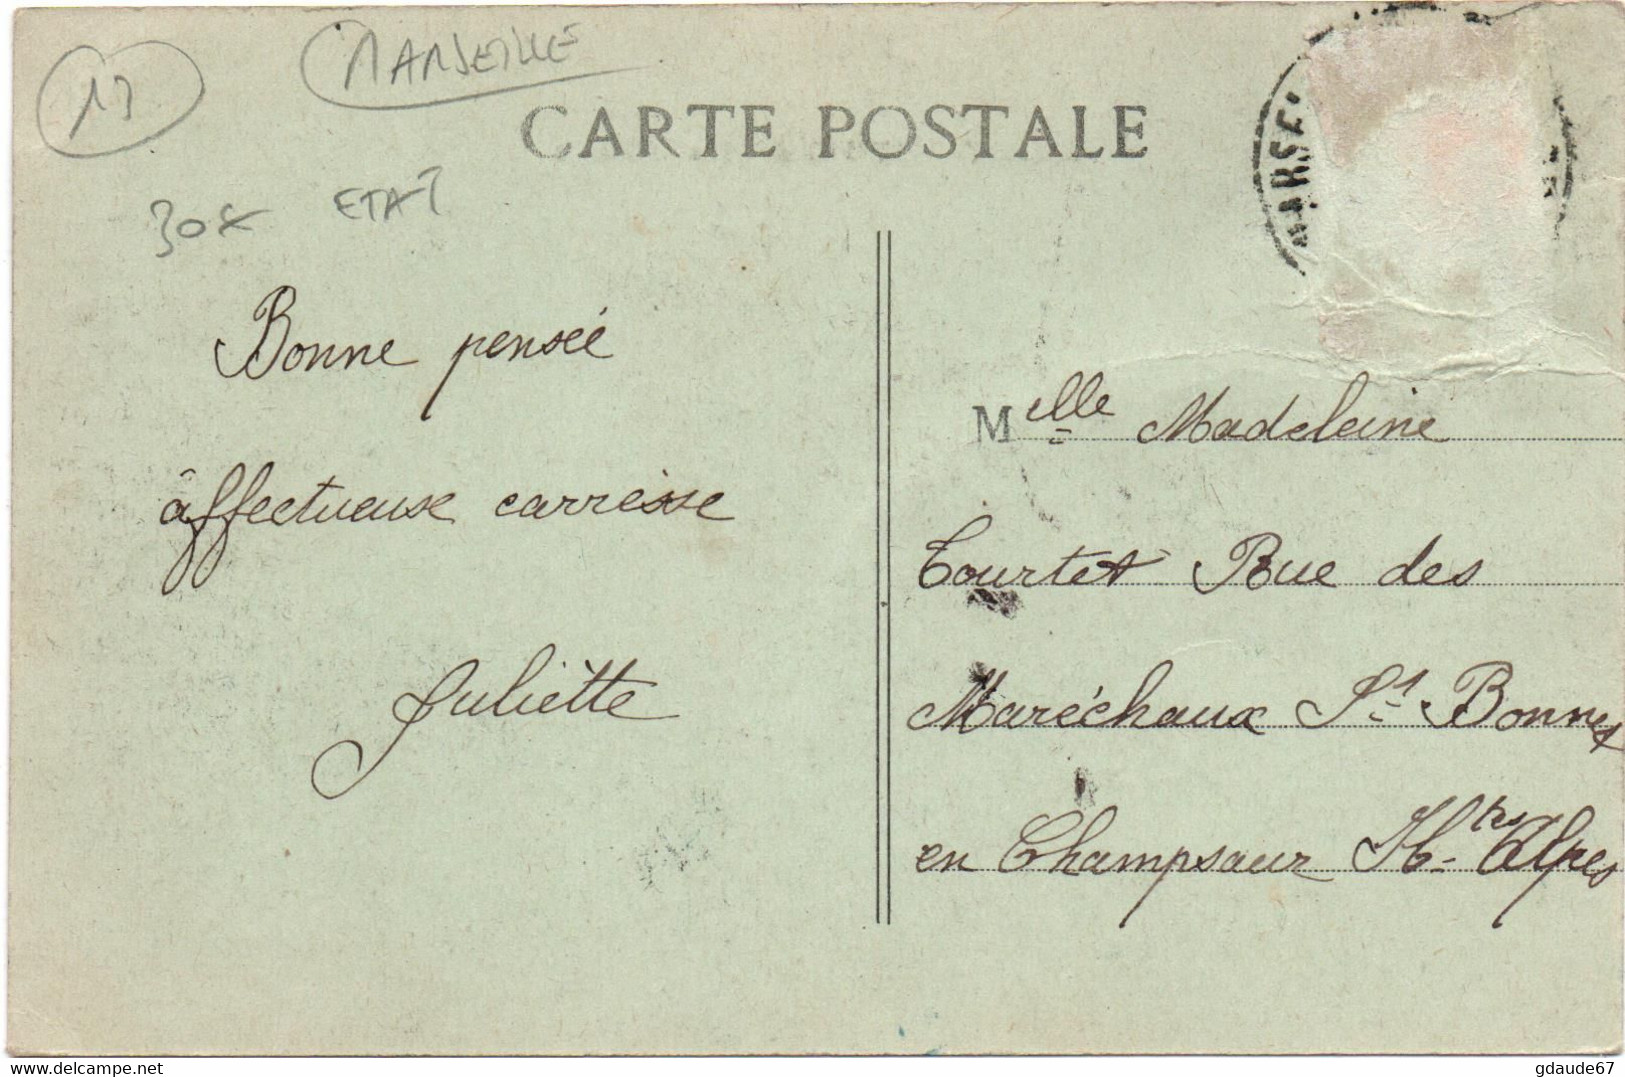 13
MARSEILLE
CARTE POSTALE
MARSEI
30€ ETAT
Bonne pensée
âffectueuse carrèsse
Juliètte
Melle Madeleine
Tourtet Rue des
Maréchaux St Bonnet
en Champsaur Htes Alpes
delcampe.net
gdaude67